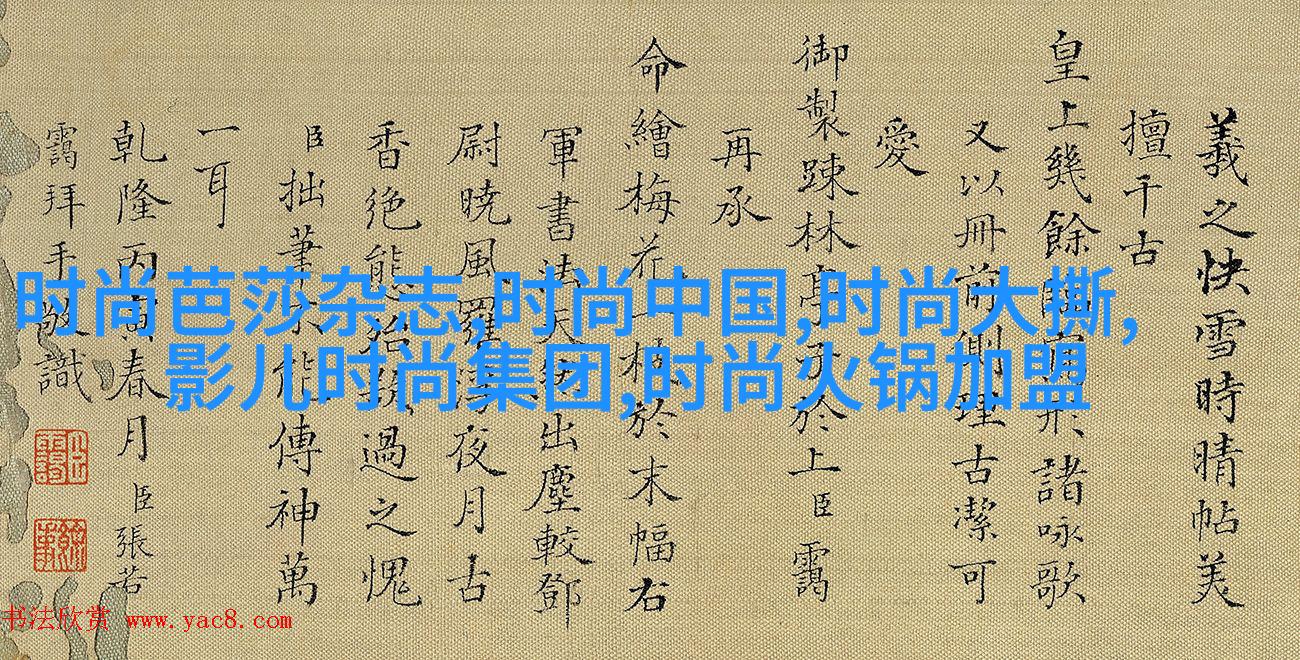 羲之快雪時晴帖美
擅千古
皇上幾餘形諸咏歌
又以冊前側理古潔可
愛
御製踈林亭子於上臣靄
再承
命繪梅花一枝於末幅右
軍書法天出塵較鄧
尉曉風羅浮夜月古
香絶態殆過之愧
臣拙筆未能傳神萬
一耳
乾隆丙寅春月臣張若
靄拜手敬識
时尚芭莎杂志,时尚中国,时尚大撕,
影儿时尚集团,时尚火锅加盟
书法欣赏 www.yac8.com